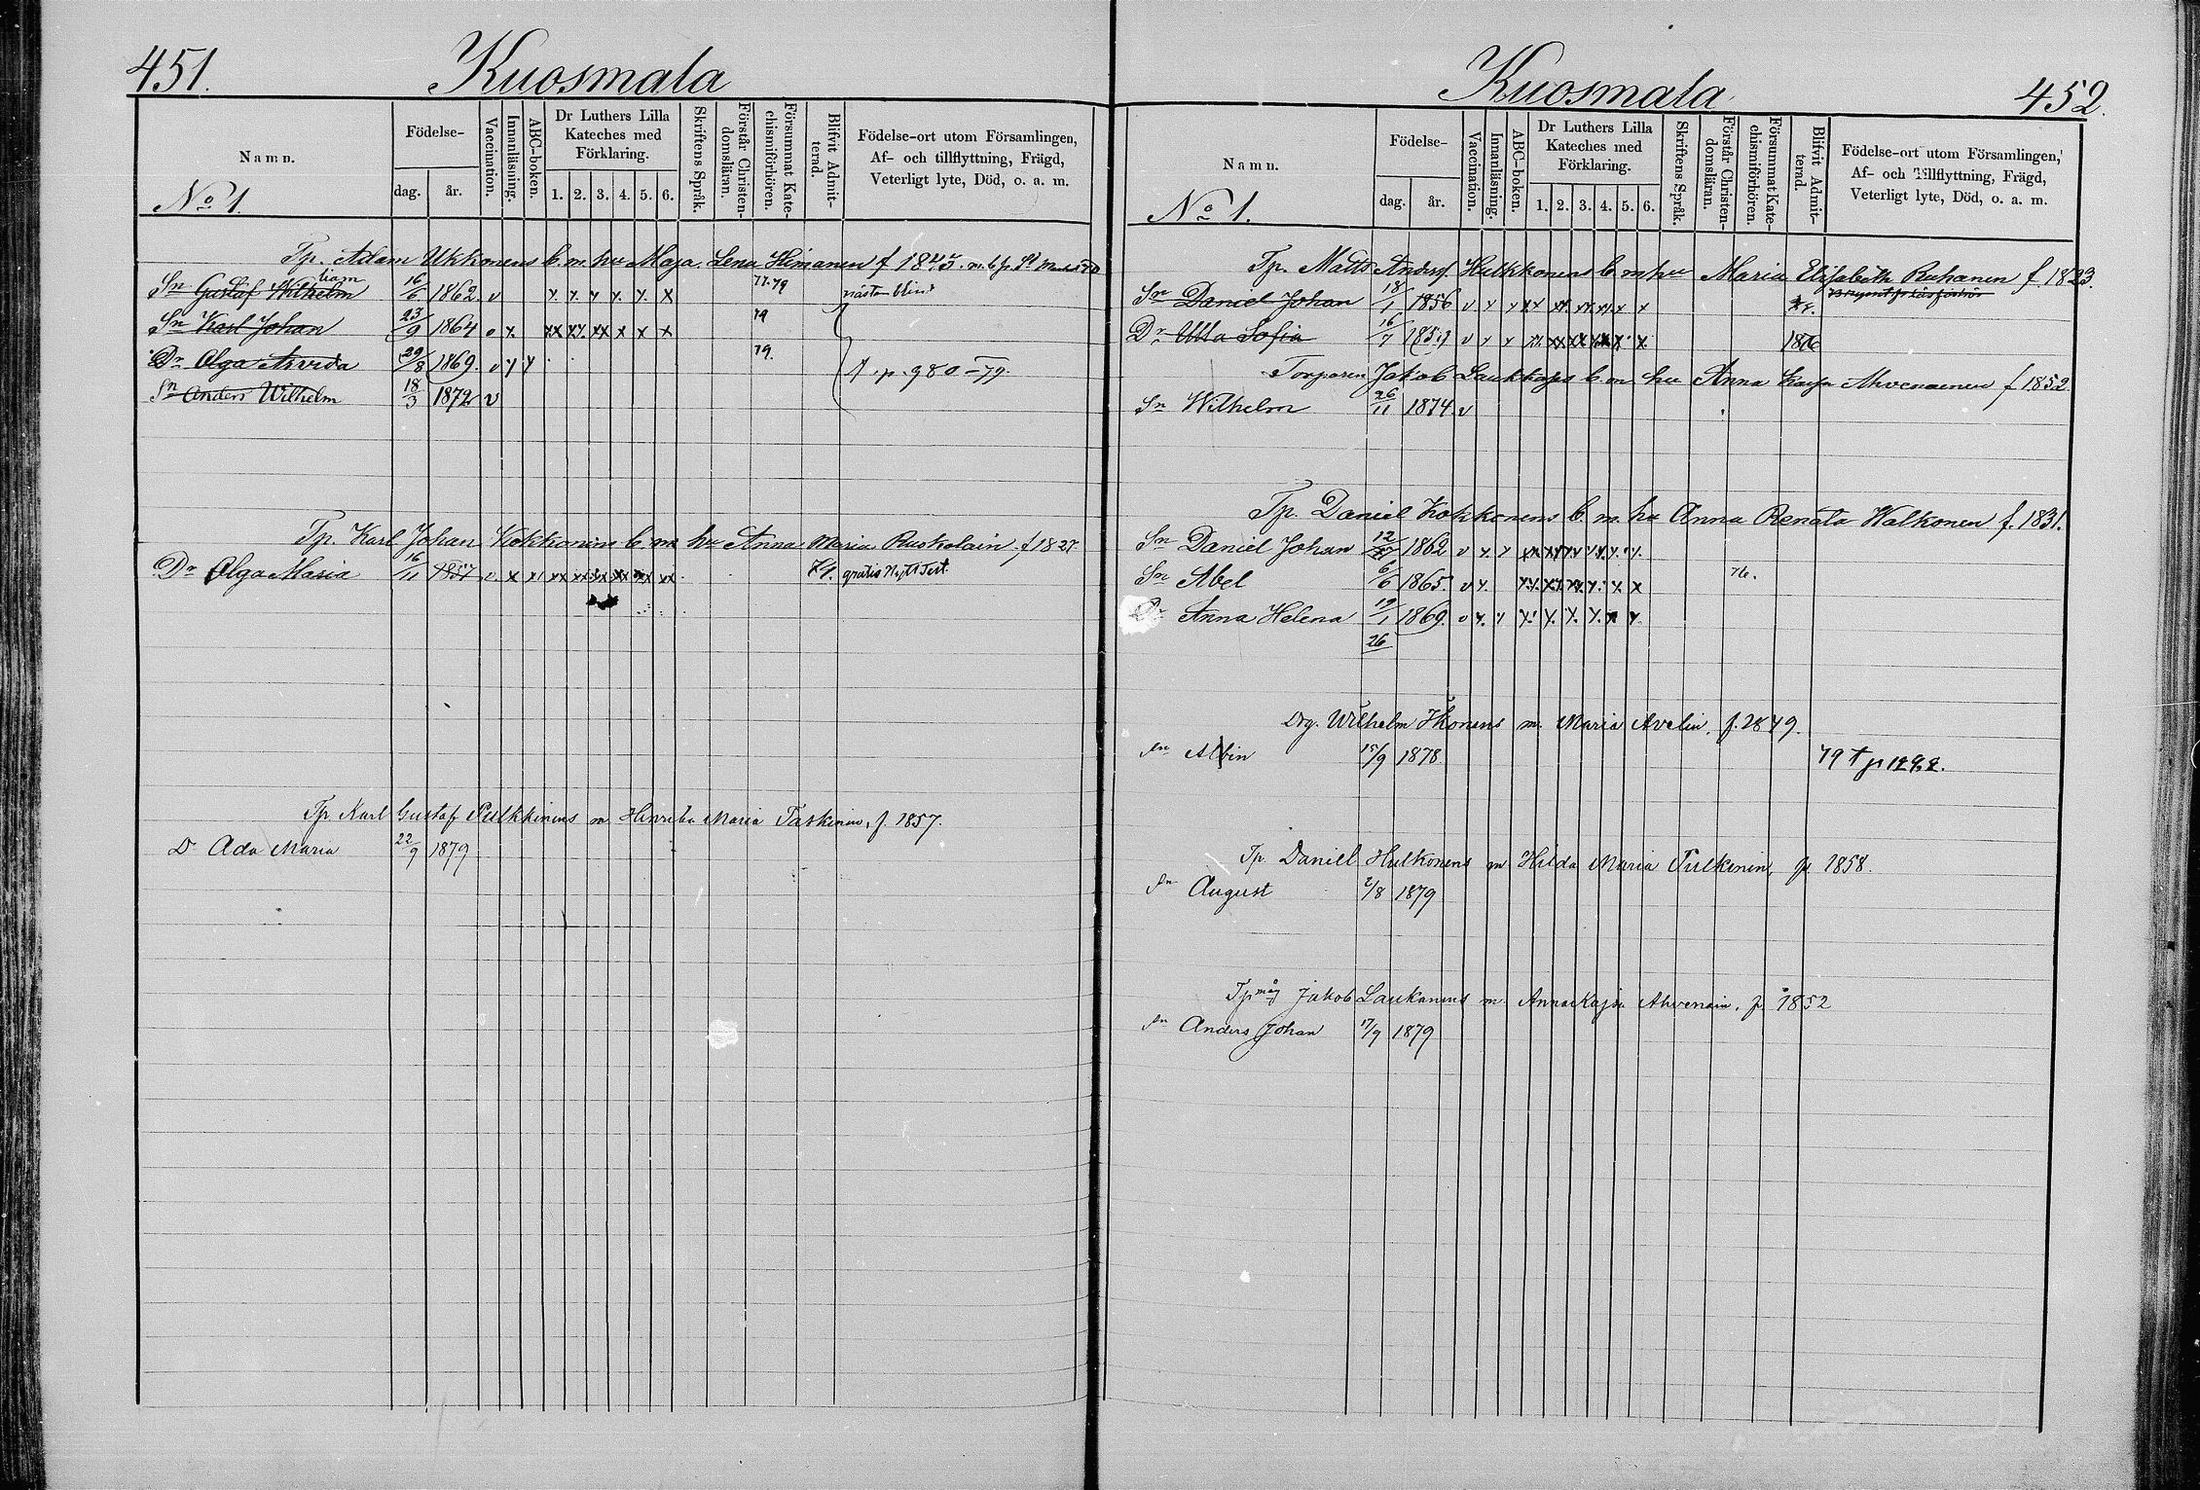 451.
Kuosmala
Namn.
Födelse-
dag.
år.
Vaccination.
Innanläsning.
ABC-boken.
Dr Luthers Lilla
Kateches med
Förklaring.
1. 2. 3. 4. 5. 6.
Skriftens Språk.
Förstår Christen-
domsläran.
Försummat Kate-
chismiförhören.
Blifvit Admit-
terad.
Födelse-ort utom Församlingen,
Af- och tillflyttning, Frägd,
Veterligt lyte, Död, o. a. m.
No 1.
Tp. Adam Ukkonens b. m. hu Maja Lena Himanen f
Sn Gustaf Wilhelm 16/6 1862. v x x x x x x 77.79 nästan blind
Sn Karl Johan 23/9 1864 v x. xx xx xx x x x 79
Dr Olga Arvida 29/8 1869. v x x 79. p. 980 - 79.
Sn Anders Wilhelm 18/3 1872 v
Tp. Karl Johan Kokkonens b. m. hu Anna Maria f 1827
Dr Olga Maria 16/11 v. x x gratis N. Test.
Tp. Karl Gustaf Pulkkinens m. Maria Taskinen, f. 1857.
D. Ada Maria 22/9 1879
Kuosmala
452.
Namn.
Födelse-
dag.
år.
Vaccination.
Innanläsning.
ABC-boken.
Dr Luthers Lilla
Kateches med
Förklaring.
1. 2. 3. 4. 5. 6.
Skriftens Språk.
Förstår Christen-
domsläran.
Försummat Kate-
chismiförhören.
Blifvit Admit-
terad.
Födelse-ort utom Församlingen,
Af- och Tillflyttning, Frägd,
Veterligt lyte, Död, o. a. m.
No 1.
Tp. Matts Andersf. Hulkkonens b. m hu Maria Elisabeth Ruhanen f. 1823.
Sn Daniel Johan 18/1 1856 v x x
Dr Ulla Sofia 16/7 v x x 1876
Torparen Jakob b. m. hu Anna Kaisa Ahvenainen f 1852
Sn Wilhelm 26/11 1874 v
Tp. Daniel Kokkonens b. m. hu Anna Renata Walkonen f. 1831.
Sn Daniel Johan 1862 v x. x
Sn Abel 6/6 1865. v x. 76.
Dr Anna Helena 19/1 1869. v x. x x x. x. x. x x.
26
Wilhelm m. Maria Avelin, f. 1849.
Sn Albin 15/9 1878. 79 † p 1292.
Tp. Daniel Hulkonens m Hilda Maria Pulkinen, f. 1858.
Sn August 2/8 1879
Tp måg Jakob Laukanens m. Anna Kajsa Ahvenain. f. 1852
Sn Anders Johan 17/9 1879